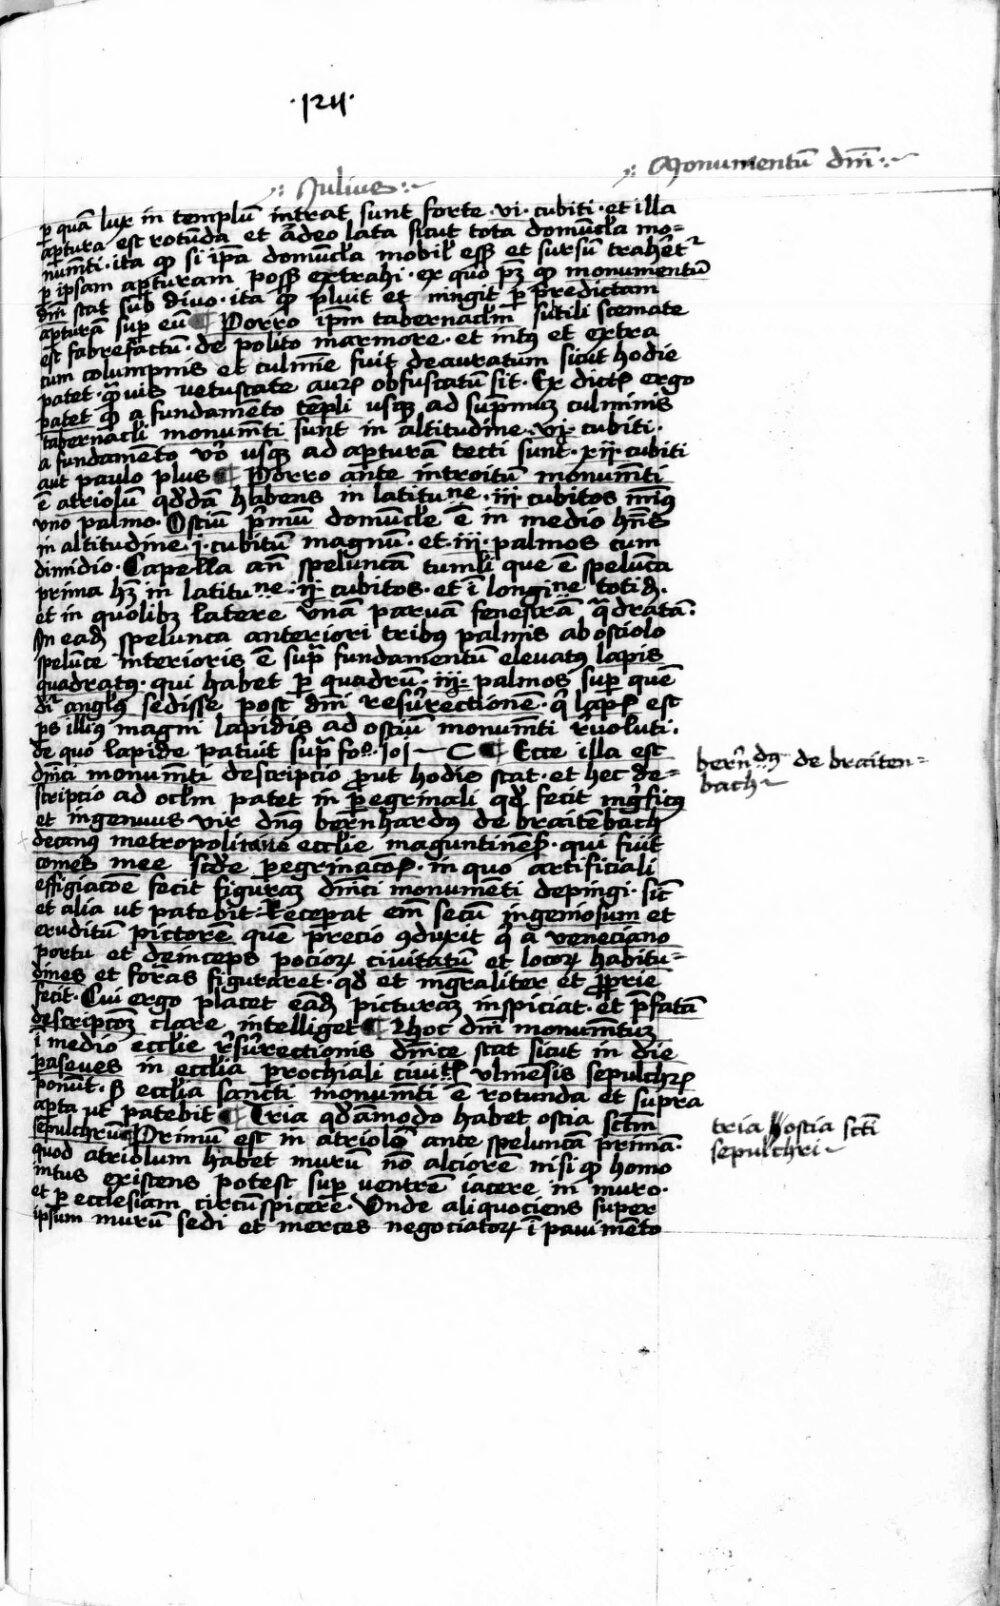 ·124·
Monumentū dm̄
Julius
p quā lux in templū intrat sunt forte · vi · cubiti · et illa
apertura est rotūda et adeo lata sicut tota domūcła mo=
numēti · ita qp si ip̄a domūcła mobil' ess; et sursū trahēt'
p ipsam apturam poss; extrahi · ex quo p; qp monumentū
dm̄ stat sub diuo · ita qp pluit et ningit p predictam
apturā sup eū ¶ Porro ip̄m tabernacłm subtili scemate
est fabrefactū · de polito marmore · et int9 et extra
cum columpnis et culmīe fuit deauratum sicut hodie
patet · q̄uis vetustate aur obfuscatū sit · Ex dict ergo
patet qp a fundamēto tēpli usq; ad supmuz culminis
tabernacłi monum̄ti sunt in altitudine · vi · cubiti ·
a fundamēto vo usq; ad apturā tecti sunt · xii · cubiti
aut paulo plus ¶ Porro ante introitū monum̄ti
ē atriolū qddā habens in latitune · iii · cubitos min9
vno palmo · Ostiū p'mū domūcłe ē in medio hn̄s
in altitudine · j · cubitū magnū · et · iii · palmos cum
dimidio · Capella an̄ speluncā tumłi que ē spelūca
prima h; in latitune · ii · cubitos · et ī longine totid ·
et in quolib; latere vnā paruā fenestrā q̄dratā ·
In ead spelunca anteriori tribus palmis ab ostiolo
spelūce interioris ē sup fundamentū eleuatus lapis
quadratus · qui habet p quadrū · iii · palmos sup quē
dr angłus sedisse post dm̄ resurrectionē · q' lapis est
ps illius magni lapidis ad ostiū monum̄ti reuoluti ·
de quo lapide patuit sup fo · 101 — C ¶ Ecce illa est
dm̄ci monum̄ti descriptio prout hodie stat · et hec de=
scriptio ad ocłm patet in peregrinali qd fecit mgficus
et ingenuus vir dn̄s bernhardus de braitēbach
decanus metropolitane ecclīe maguntinēs · qui fuit
comes mee scde peregrinacōis · in quo artificiali
effigiacōe fecit figuraz dm̄ci monumēti depingi · sic
et alia ut patebit · Recepat em̄ secū ingeniosum et
eruditū pictorē quē precio 9duxit qi a veneciano
portu et deinceps pocior ciuitatū et locor habitu=
dines et for̄as figuraret · qd et mgraliter et pprie
fecit · Cui ergo placet eād picturaz inspiciat · et pfatā
descriptōez clare intelliget ¶ Hoc dm̄ monum̄tuz
ī medio ecclīe resurrectionis dm̄ice stat sicut in die
pasceues in ecclīa prochiali ciuitis vlmēsis sepulchr
ponūt · S; ecclīa sancti monum̄ti ē rotunda et supra
apta ut patebit ¶ Tria qdāmodo habet ostia sctm̄
sepulchrū ¶ Primū est in atriolo ante speluncā primā ·
quod atriolum habet murū nō alciorē nisi qp homo
intus existens potest sup ventrē iacere in muro ·
et p ecclesiam circūspicere · Vnde aliquociens super
ipsum murū sedi et merces negociator ī pauimēto
bern̄dus de braiten=
bach
tria ostia sctī
sepulchri